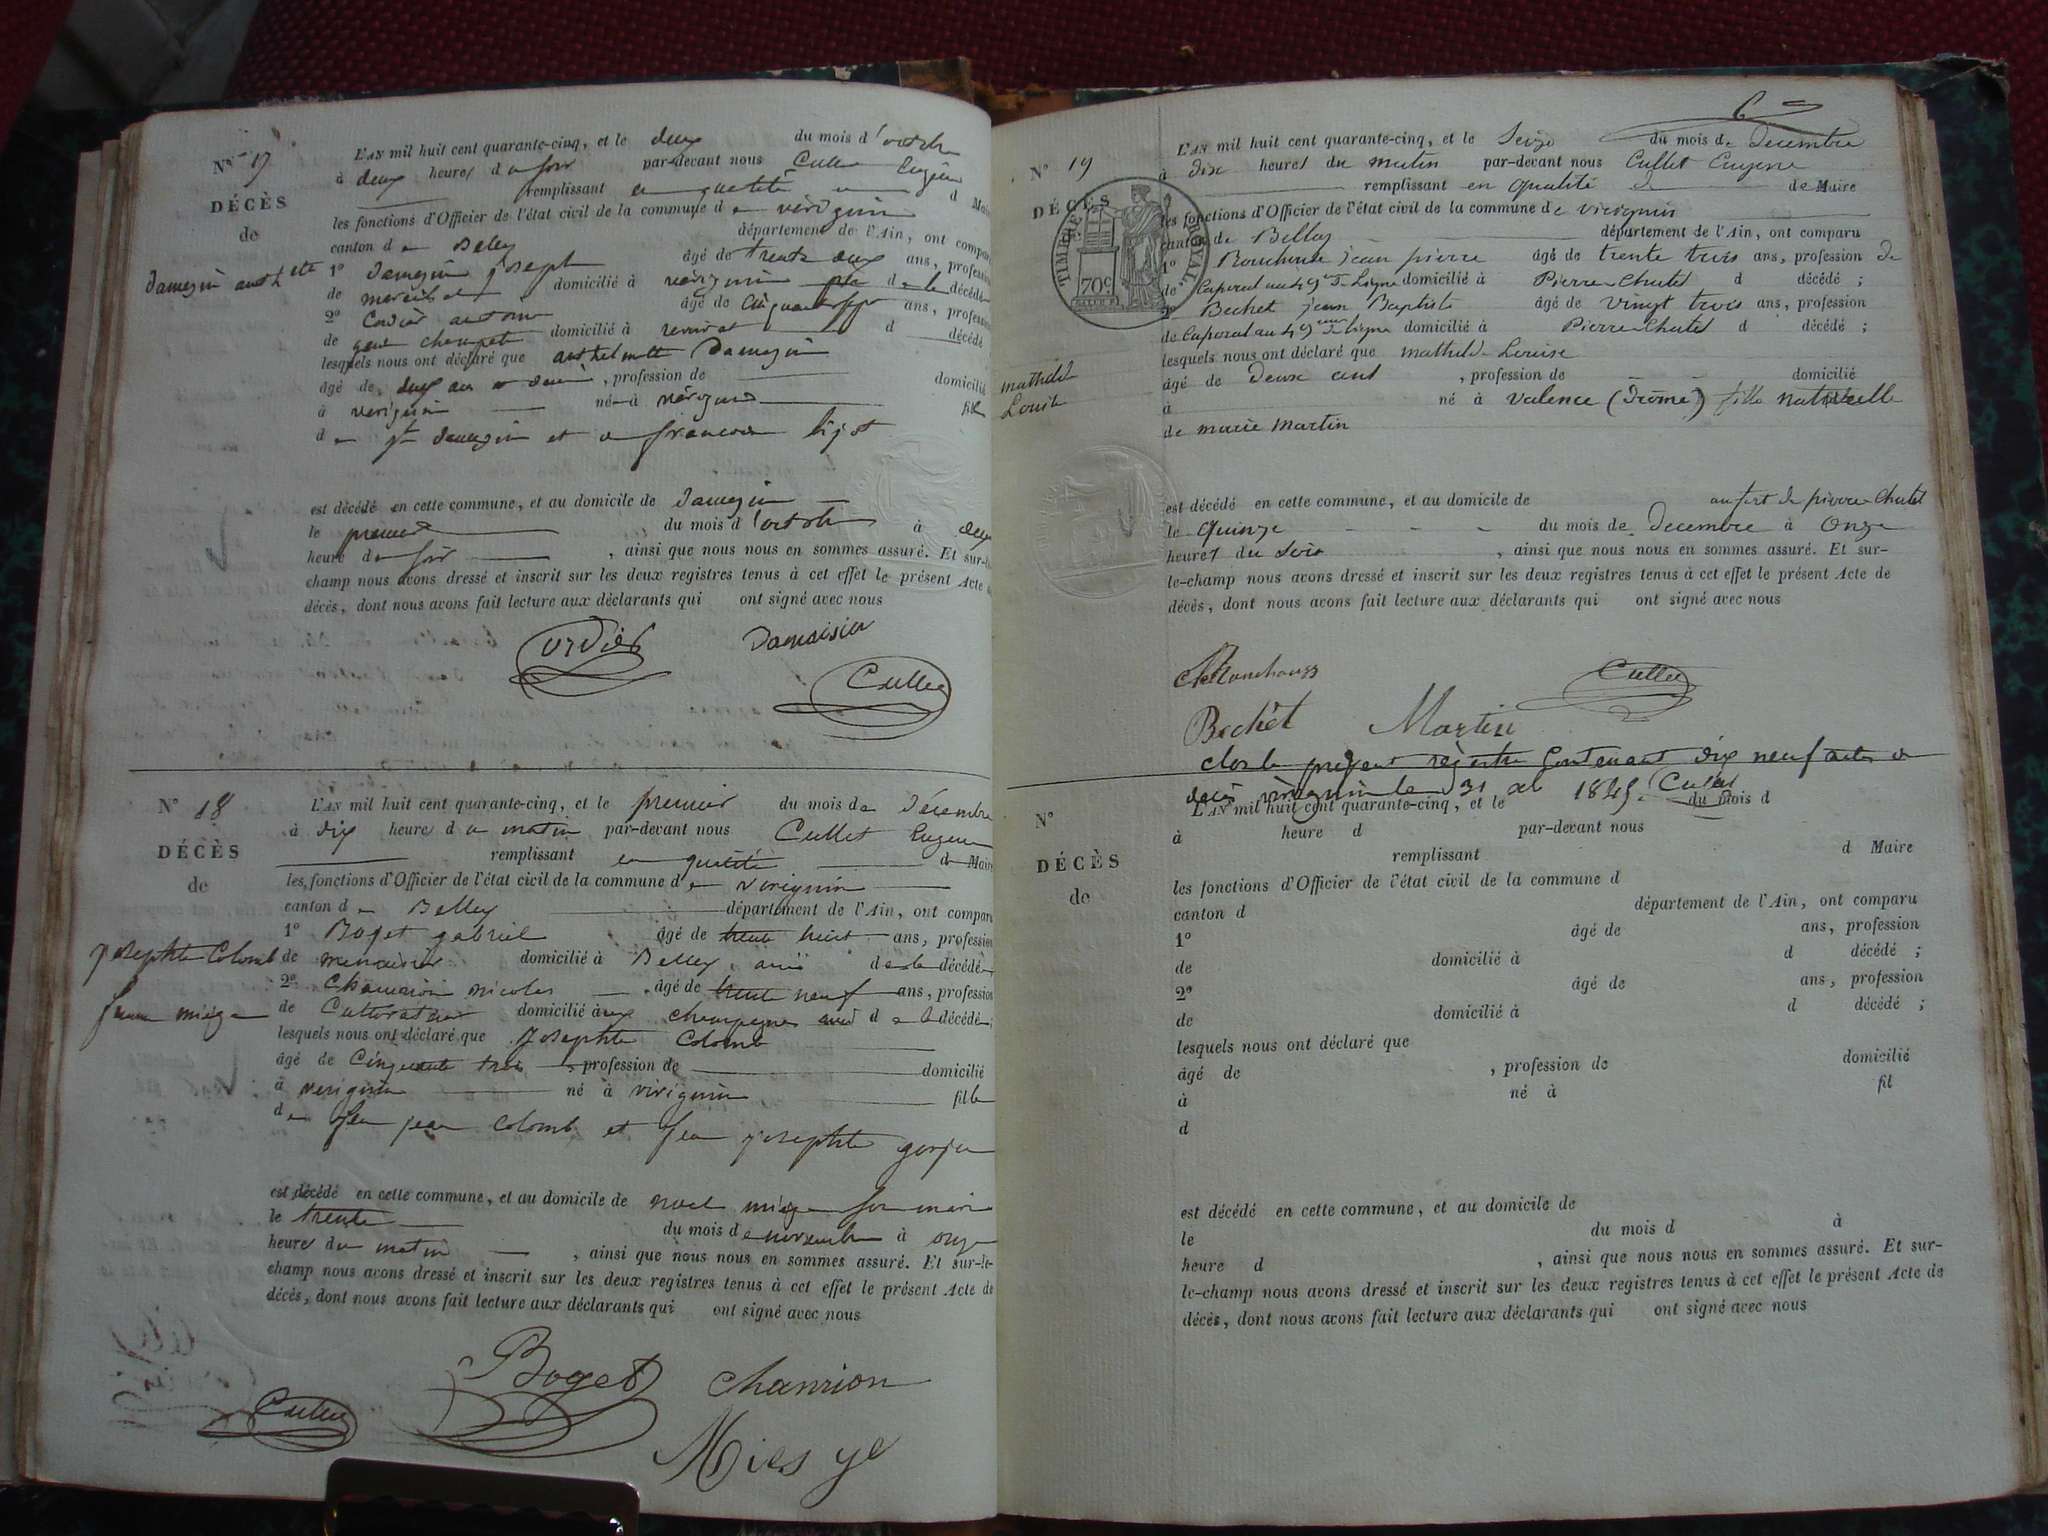 N° 17
DÉCÈS
de
L'AN mil huit cent quarante-cinq, et le deux du mois d'octobre
à deux heures du soir par-devant nous Cullet Eugène
remplissant en qualité de Maire
les fonctions d'Officier de l'état civil de la commune de virignin
canton de Belley département de l'Ain, ont comparu
1° Damezin joseph âgé de trente deux ans, profession
de domicilié à virignin de la décédé
2° Cordier antoine âgé de ans, profession
de garde champetre domicilié à d décédé
lesquels nous ont déclaré que anthelmette Damezin
âgé de deux ans et demi, profession de domicilié
à virignin né à virignin fille
de Damezin et de françoise
est décédé en cette commune, et au domicile de Damezin
le premier du mois d'octobre à deux
heure du soir, ainsi que nous nous en sommes assuré. Et sur-le-
champ nous avons dressé et inscrit sur les deux registres tenus à cet effet le présent Acte de
décès, dont nous avons fait lecture aux déclarants qui ont signé avec nous
Cordier Damaisin
Cullet
N° 18
DÉCÈS
de
josephte Colomb
femme miège
L'AN mil huit cent quarante-cinq, et le premier du mois de Décembre
à dix heures du matin par-devant nous Cullet Eugene
remplissant en qualité de Maire
les fonctions d'Officier de l'état civil de la commune de virignin
canton de Belley département de l'Ain, ont comparu
1° Boget gabriel âgé de trente huit ans, profession
de menuisier domicilié à Belley ami de la décédée
2° Chamrion nicolas âgé de trente neuf ans, profession
de Cultivateur domicilié à champagne ami de la décédée;
lesquels nous ont déclaré que Josephte Colomb
âgé de Cinquante trois, profession de domicilié
à virignin né à virignin fille
de feu jean Colomb et feu josephte gonju
est décédé en cette commune, et au domicile de noel miège son mari
le trente du mois de novembre à onze
heures du matin, ainsi que nous nous en sommes assuré. Et sur-le-
champ nous avons dressé et inscrit sur les deux registres tenus à cet effet le présent Acte de
décès, dont nous avons fait lecture aux déclarants qui ont signé avec nous
Boget Chamrion
Cullet
N° 19
DÉCÈS
TIMBRE ROYAL
70c
mathilde
Louise
L'AN mil huit cent quarante-cinq, et le Seize du mois de Decembre
à dix heures du matin par-devant nous Cullet Eugene
remplissant en qualité de de Maire
les fonctions d'Officier de l'état civil de la commune de virignin
canton de Belley département de l'Ain, ont comparu
1° jean pierre âgé de trente trois ans, profession de
de Caporal au 49e de Ligne domicilié à Pierre-Chatel d décédé;
2° Bechet jean Baptiste âgé de vingt trois ans, profession
de Caporal au 49eme de ligne domicilié à Pierre-Chatel d décédé;
lesquels nous ont déclaré que mathilde Louise
âgé de deux ans, profession de domicilié
à né à valence (Drôme) fille naturelle
de marie martin
est décédé en cette commune, et au domicile de au fort de pierre-Chatel
le quinze du mois de decembre à Onze
heures du Soir, ainsi que nous nous en sommes assuré. Et sur-
le-champ nous avons dressé et inscrit sur les deux registres tenus à cet effet le présent Acte de
décès, dont nous avons fait lecture aux déclarants qui ont signé avec nous
Cullet
Bechet Martin
clos le present registre Contenant dix neuf actes de
décès virignin le 31 xbre 1845. Cullet
N°
DÉCÈS
de
L'AN mil huit cent quarante-cinq, et le du mois d
à heure d par-devant nous
remplissant d Maire
les fonctions d'Officier de l'état civil de la commune d
canton d département de l'Ain, ont comparu
1° âgé de ans, profession
de domicilié à d décédé;
2° âgé de ans, profession
de domicilié à d décédé;
lesquels nous ont déclaré que
âgé de, profession de domicilié
à né à fil
d
est décédé en cette commune, et au domicile de
le du mois d à
heure d, ainsi que nous nous en sommes assuré. Et sur-
le-champ nous avons dressé et inscrit sur les deux registres tenus à cet effet le présent Acte de
décès, dont nous avons fait lecture aux déclarants qui ont signé avec nous